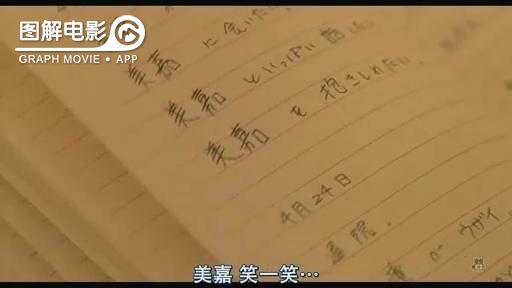 图解电影
GRAPH MOVIE • APP
美嘉 に会いた
美嘉 といっぱい
美嘉 を抱きしめたい。
4月24日
美嘉 笑一笑…